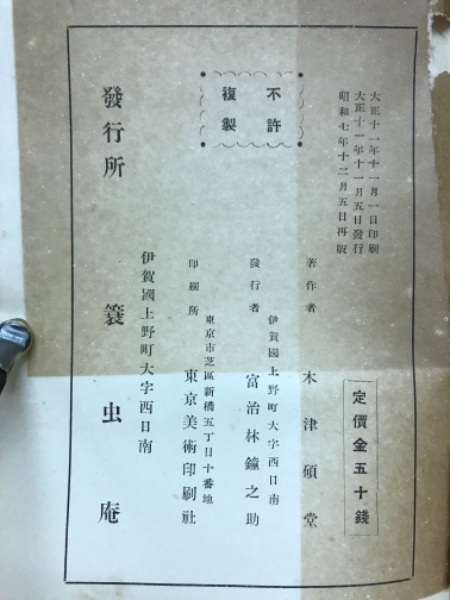 大正十一年十一月一日印刷
大正十一年十一月五日發行
昭和七年十二月五日再版
定價金五十錢
不許
複製
著作者
木津碩堂
伊賀國上野町大字西日南
發行者
富治林鐘之助
東京市芝區新橋五丁目十番地
印刷所
東京美術印刷社
伊賀國上野町大字西日南
發行所
蓑虫庵